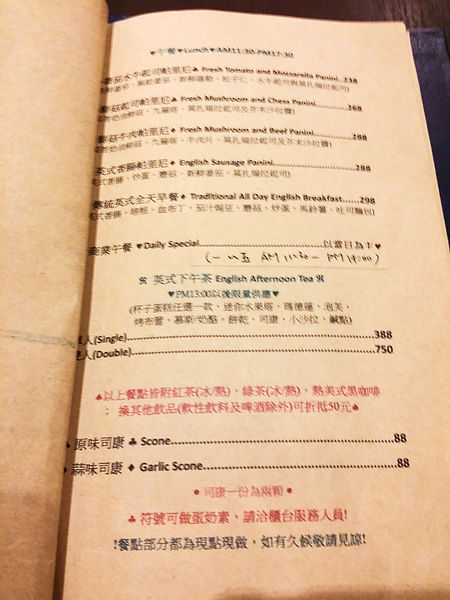 ♥午餐♥Lunch♥AM11:30-PM17:30
番茄水牛起司帕里尼♣ Fresh Tomato and Mozzarella Panini..238
鮮菇起司帕里尼♣ Fresh Mushroom and Chess Panini...............268
鮮菇牛肉帕里尼♦ Fresh Mushroom and Beef Panini...............288
英式香腸帕里尼♦ English Sausage Panini........................288
英式香腸、炒蛋、蘑菇、新鮮番茄、莫札瑞拉起司)
傳統英式全天早餐♦ Traditional All Day English Breakfast......298
英式香腸、培根、血布丁、茄汁焗豆、蘑菇、炒蛋、馬鈴薯、吐司麵包)
商業午餐 ♥Daily Special...............................以當日為主♥
(一~五 AM 11:30 - PM 14:00)
ೞ 英式下午茶 English Afternoon Tea ೞ
♥PM13:00以後限量供應♥
(杯子蛋糕任選一款，迷你水果塔、瑪德蓮、泡芙、
烤布蕾、慕斯/奶酪、餅乾、司康、小沙拉、鹹點)
人(Single)................................................388
人(Double)................................................750
♠以上餐點皆附紅茶(冰/熱)，綠茶(冰/熱)，熱美式黑咖啡
； 換其他飲品(軟性飲料及啤酒除外)可折抵50元♠
♦ 原味司康 ♣ Scone.........................................88
♦ 蒜味司康 ♦ Garlic Scone..................................88
• 司康一份為兩顆 •
♣ 符號可做蛋奶素，請洽櫃台服務人員!
!餐點部分都為現點現做，如有久候敬請見諒!